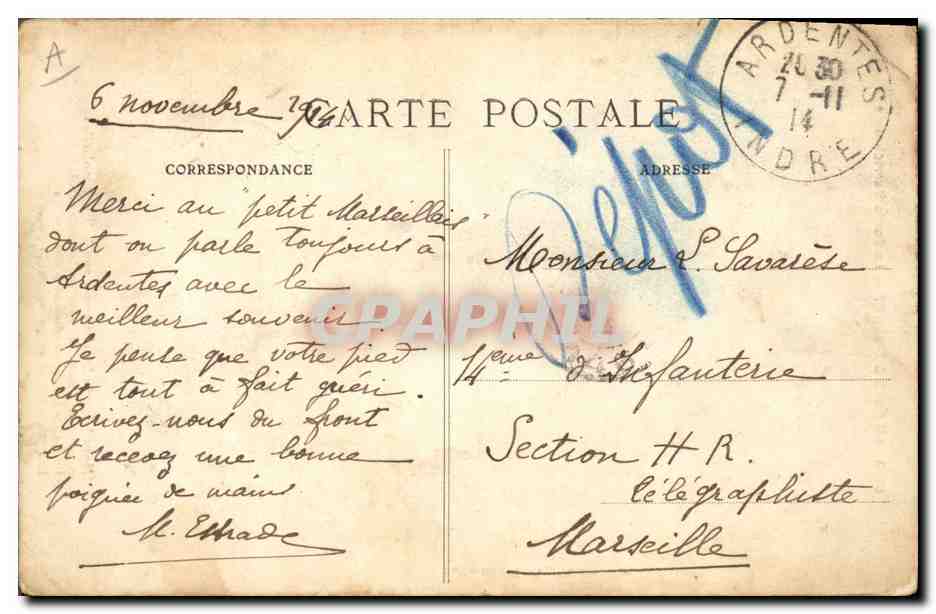 A
6 novembre 1914
CARTE POSTALE
ARDENTES
20 30
7 -11
14
INDRE
Dépôt
CORRESPONDANCE
ADRESSE
Merci au "petit Marseillais"
dont on parle toujours à
Ardentes avec le
meilleur souvenir.
Je pense que votre pied
est tout à fait guéri.
Ecrivez-nous du front
et recevez une bonne
poignée de mains
M. Estrade
Monsieur L. Savarèse
d'Infanterie
Section H R.
télégraphiste
Marseille
GRAPHIL